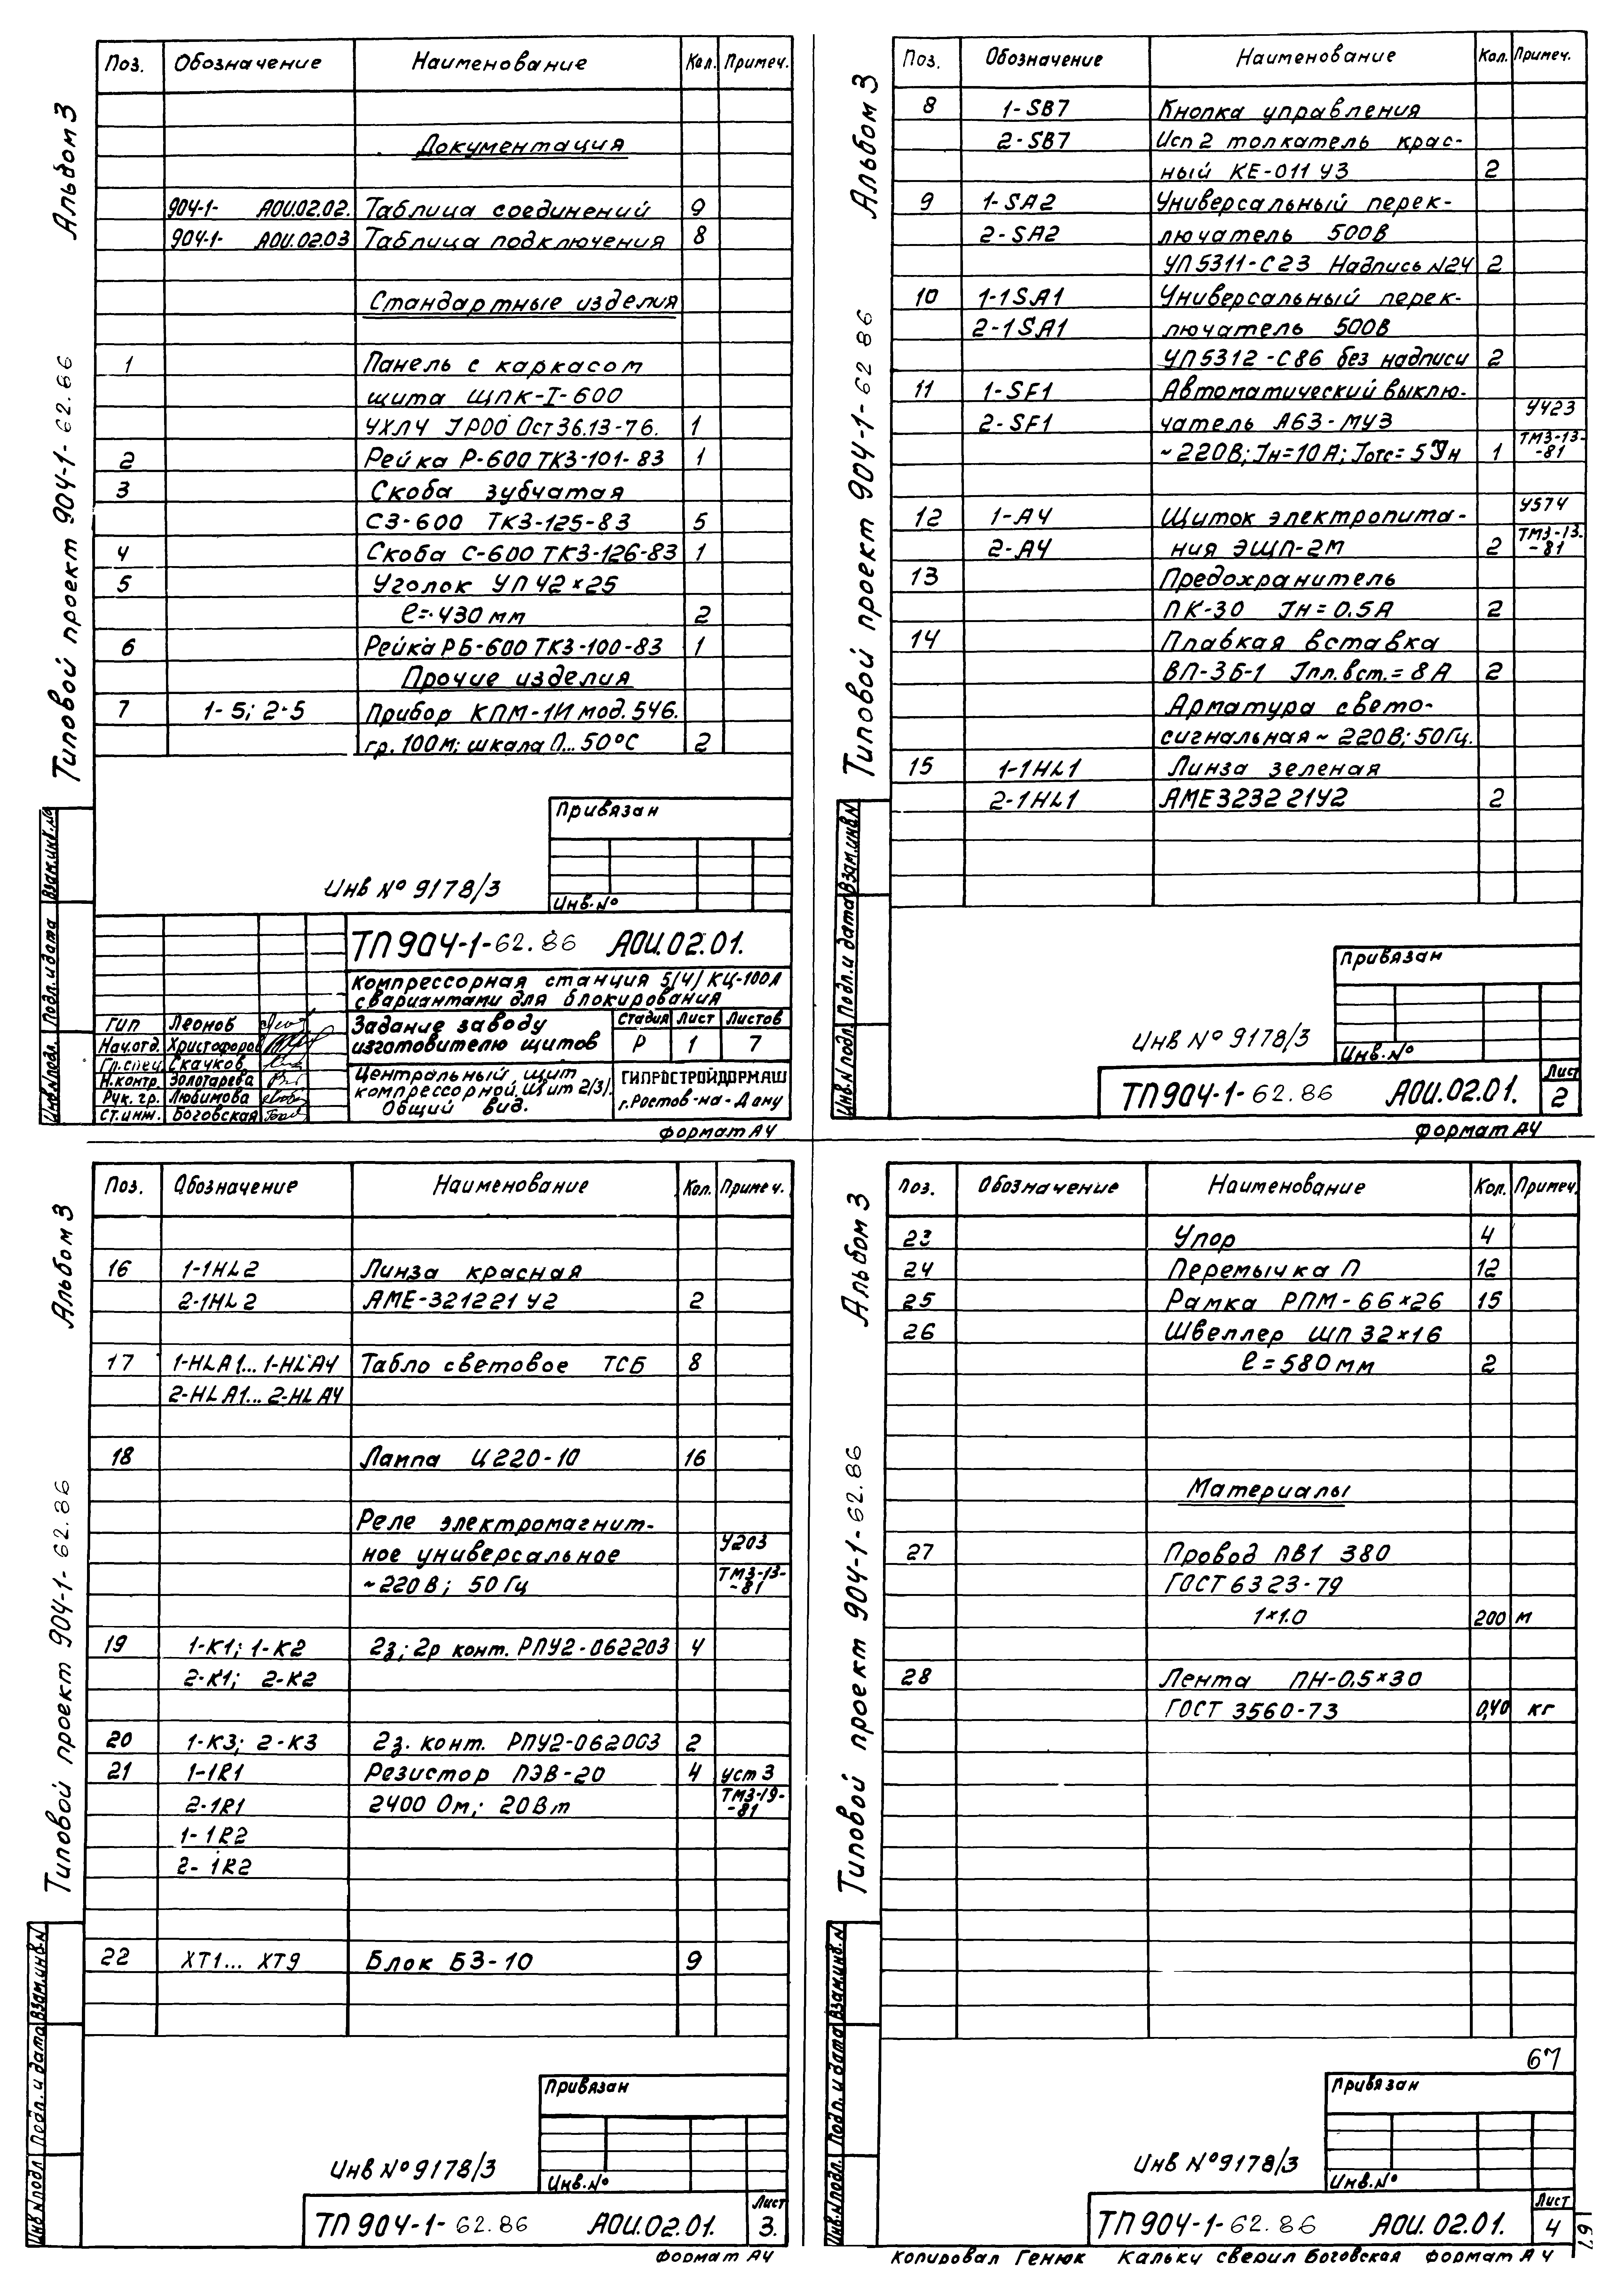 Альбом 3
Типовой проект 904-1-62.86
Поз. Обозначение Наименование Кол. Примеч.
Документация
904-1- АОИ.02.02. Таблица соединений 9
904-1- АОИ.02.03 Таблица подключения 8
Стандартные изделия
1 Панель с каркасом
щита ЩПК-I-600
УХЛ4 IP00 Ост 36.13-76. 1
2 Рейка Р-600 ТК3-101-83 1
3 Скоба зубчатая
СЗ-600 ТК3-125-83 5
4 Скоба С-600 ТК3-126-83 1
5 Уголок УП 42×25
ℓ=430 мм 2
6 Рейка РБ-600 ТК3-100-83 1
Прочие изделия
7 1-5; 2-5 Прибор КПМ-1И мод. 546.
гр. 100м; шкала 0...50°С 2
Привязан
Инв №9178/3
Инв.№
ТП 904-1-62.86 АОИ.02.01.
Компрессорная станция 5(4) КЦ-100А
с вариантами для блокирования
ГИП Леонов
Нач.отд. Христофоров
Гр.спец. Скачков
Н.контр. Золотарева
Рук. гр. Любимова
Ст.инж. Боговская
Задание заводу
изготовителю щитов
Стадия Лист Листов
Р 1 7
Центральный щит
компрессорной. Щит 2(3).
Общий вид.
ГИПРОСТРОЙДОРМАШ
г. Ростов-на-Дону
Взам.инв.№
Подп.и дата
Инв.№подл.
Формат А4
Альбом 3
Типовой проект 904-1-62 86
Поз. Обозначение Наименование Кол. Примеч.
8 1-SB7 Кнопка управления
2-SB7 Исп 2 толкатель крас-
ный КЕ-011 У3 2
9 1-SA2 Универсальный перек-
2-SA2 лючатель 500В
УП5311-С23 Надпись №24 2
10 1-1SA1 Универсальный перек-
2-1SA1 лючатель 500В
УП5312-С86 без надписи 2
11 1-SF1 Автоматический выклю-
2-SF1 чатель А63-МУ3 У423
~220В; Iн=10А; Iотс=5Iн 1 ТМ3-13-
-81
12 1-А4 Щиток электропита- У574
2-А4 ния ЭЩП-2М 2 ТМ3-13.
-81
13 Предохранитель
ПК-30 Iн=0.5А 2
14 Плавкая вставка
ВП-3Б-1 Iпл.вст.=8А 2
Арматура свето-
сигнальная ~220В; 50Гц.
15 1-1HL1 Линза зеленая
2-1HL1 АМЕ323221У2 2
Привязан
Инв №9178/3
Инв.№
ТП 904-1-62.86 АОИ.02.01.
Лист
2
Взам.инв.№
Подп.и дата
Инв.№подл.
Формат А4
Альбом 3
Типовой проект 904-1-62.86
Поз. Обозначение Наименование Кол. Примеч.
16 1-1HL2 Линза красная
2-1HL2 АМЕ-321221У2 2
17 1-HLA1...1-HLA4 Табло световое ТСБ 8
2-HLA1...2-HLA4
18 Лампа Ц220-10 16
Реле электромагнит-
ное универсальное У203
~220В; 50Гц ТМ3-13-
-81
19 1-К1; 1-К2 2з; 2р конт. РПУ2-062203 4
2-К1; 2-К2
20 1-К3; 2-К3 2з. конт. РПУ2-062003 2
21 1-1R1 Резистор ПЭВ-20 4 уст 3
2-1R1 2400 Ом; 20Вт ТМ3-19-
-81
1-1R2
2-1R2
22 ХТ1...ХТ9 Блок БЗ-10 9
Привязан
Инв №9178/3
Инв.№
ТП 904-1-62.86 АОИ.02.01.
Лист
3.
Взам.инв.№
Подп. и дата
Инв.№подл
Формат А4
Альбом 3
Типовой проект 904-1-62.86
Поз. Обозначение Наименование Кол. Примеч.
23 Упор 4
24 Перемычка П 12
25 Рамка РПМ-66×26 15
26 Швеллер ШП 32×16
ℓ=580мм 2
Материалы
27 Провод ПВ1 380
ГОСТ 6323-79
1×1.0 200 м
28 Лента ПН-0,5×30
ГОСТ 3560-73 0,40 кг
67
Привязан
Инв №9178/3
Инв.№
ТП 904-1-62.86 АОИ.02.01.
Лист
4
67
Взам.инв.№
Подп. и дата
Инв.№подл.
Копировал Генюк Кальку сверил Боговская Формат А4